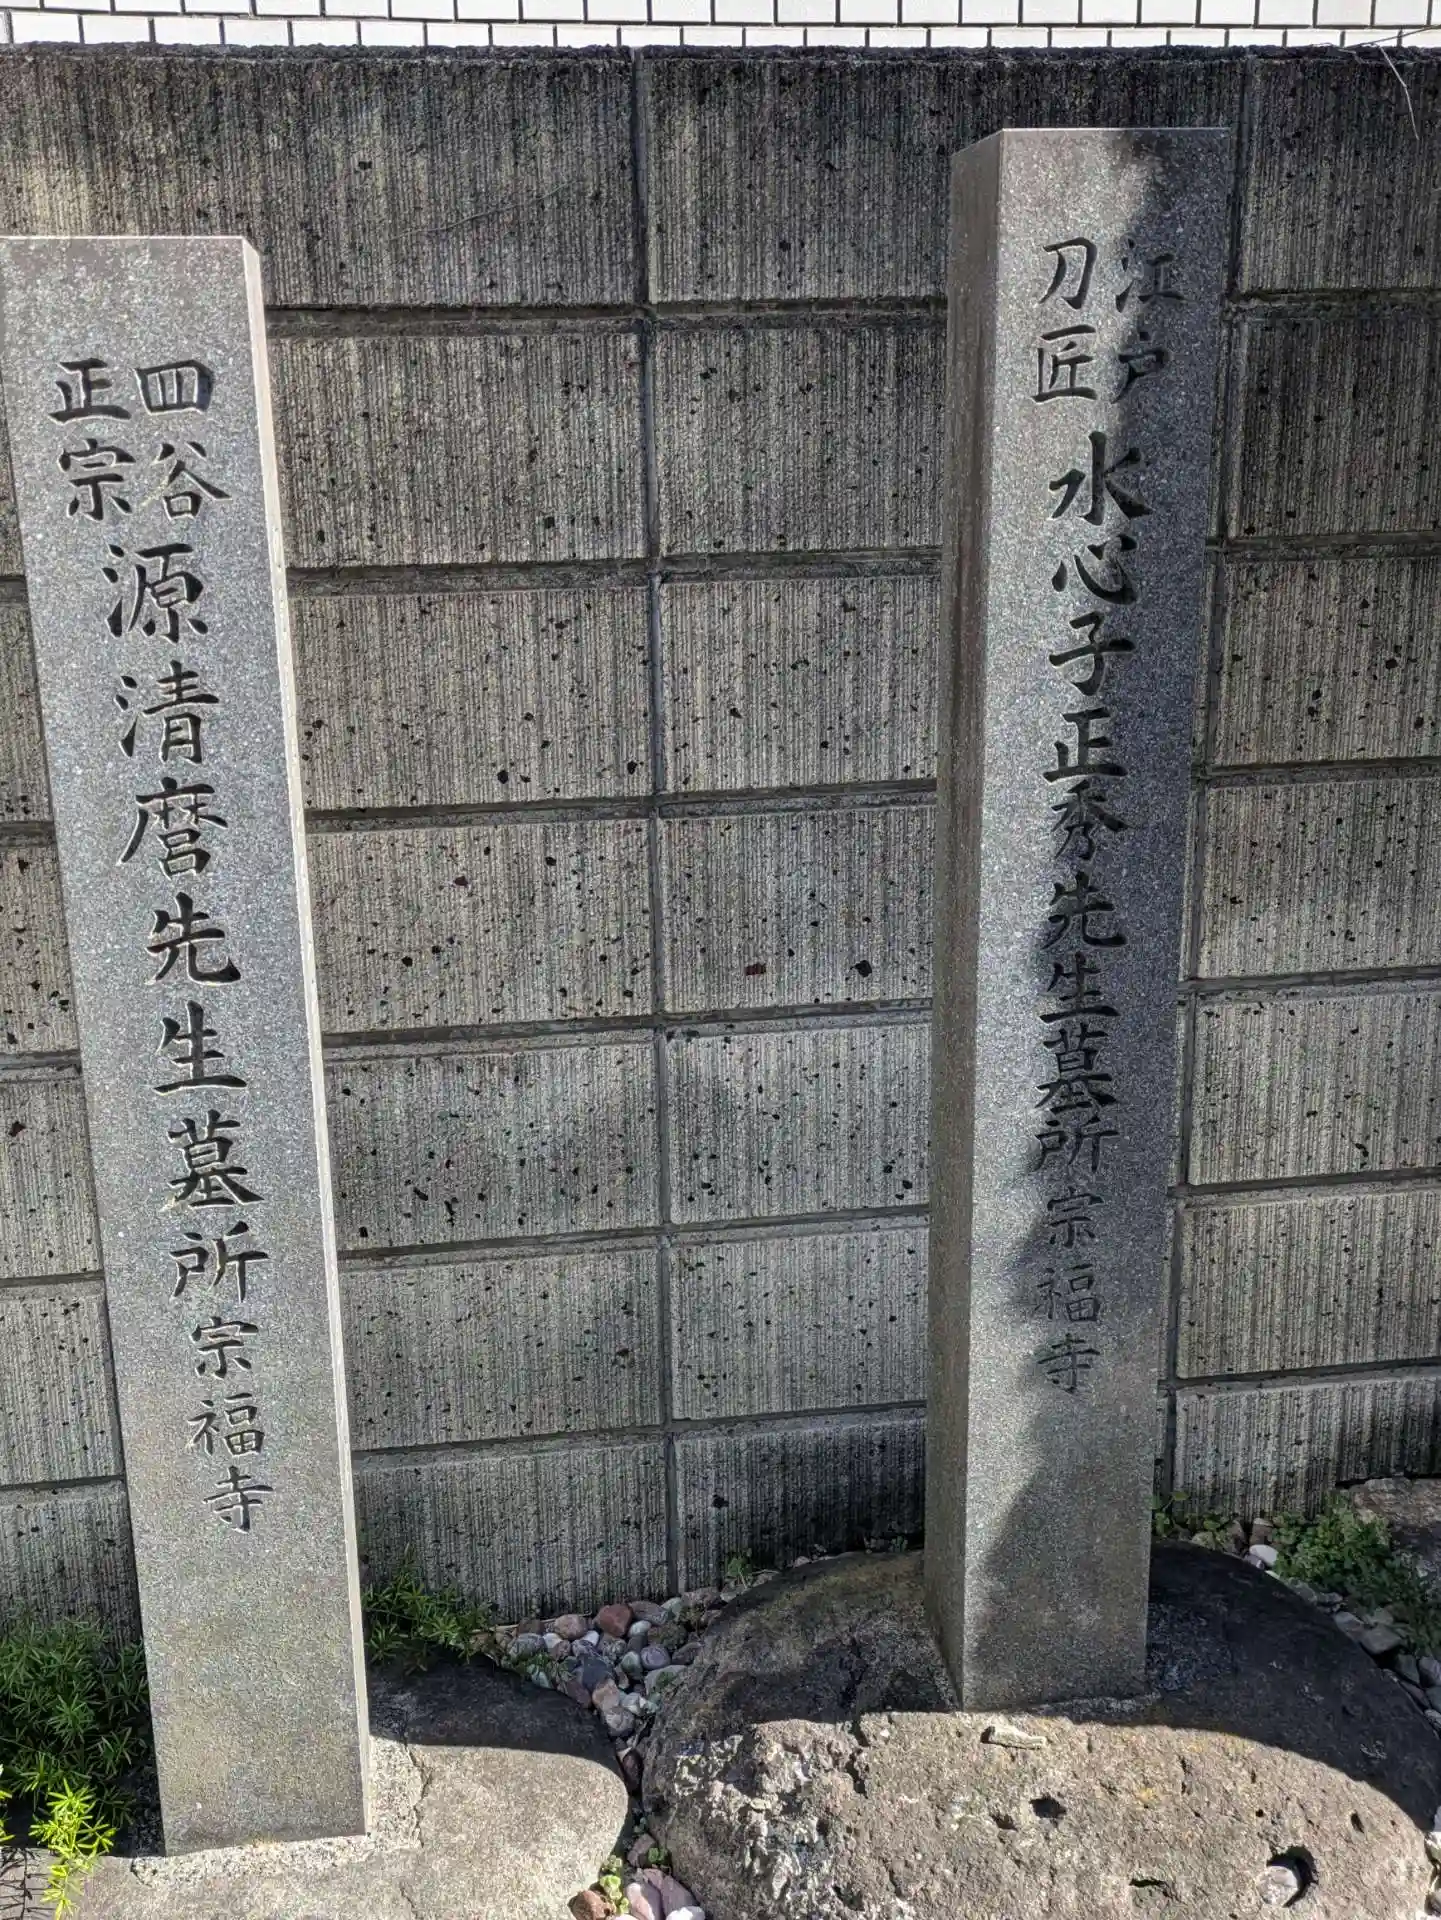 江戸
刀匠
水心子正秀先生墓所 宗福寺
四谷
正宗
源清麿先生墓所 宗福寺